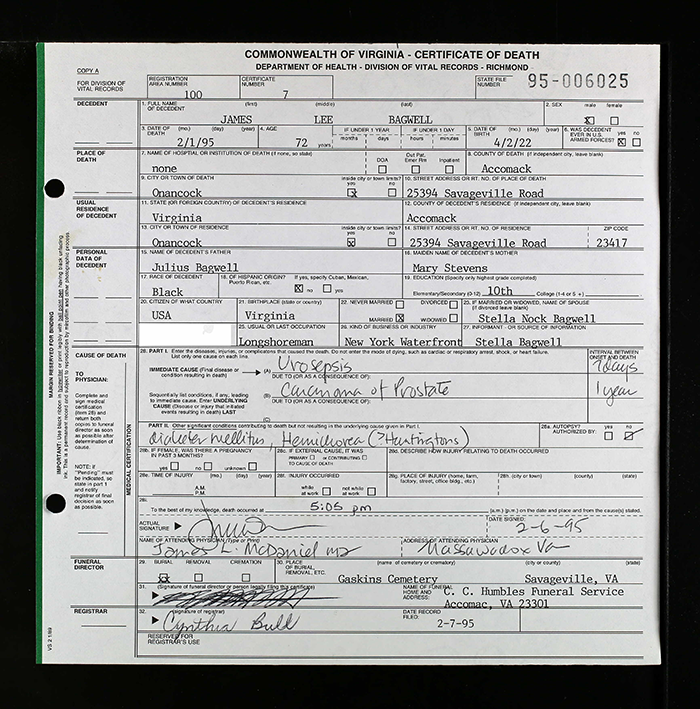 COMMONWEALTH OF VIRGINIA - CERTIFICATE OF DEATH
DEPARTMENT OF HEALTH - DIVISION OF VITAL RECORDS - RICHMOND
COPY A
FOR DIVISION OF VITAL RECORDS
REGISTRATION AREA NUMBER 100
CERTIFICATE NUMBER 7
STATE FILE NUMBER 95-006025
DECEDENT
1. FULL NAME OF DECEDENT (first) (middle) (last)
JAMES LEE BAGWELL
2. SEX male X female
3. DATE OF DEATH (mo.) (day) (year) 2/1/95
4. AGE 72 years
IF UNDER 1 YEAR months days
IF UNDER 1 DAY hours minutes
5. DATE OF BIRTH (mo.) (day) (year) 4/2/22
6. WAS DECEDENT EVER IN U.S. ARMED FORCES? yes X no
PLACE OF DEATH
7. NAME OF HOSPITAL OR INSTITUTION OF DEATH (if none, so state)
none
DOA Out Pat. Emer Rm Inpatient
8. COUNTY OF DEATH (if independent city, leave blank)
Accomack
9. CITY OR TOWN OF DEATH inside city or town limits? yes X no
Onancock
10. STREET ADDRESS OR RT. NO. OF PLACE OF DEATH
25394 Savageville Road
USUAL RESIDENCE OF DECEDENT
11. STATE (OR FOREIGN COUNTRY) OF DECEDENT'S RESIDENCE
Virginia
12. COUNTY OF DECEDENT'S RESIDENCE (if independent city, leave blank)
Accomack
13. CITY OR TOWN OF RESIDENCE inside city or town limits? yes X no
Onancock
14. STREET ADDRESS OR RT. NO. OF RESIDENCE ZIP CODE
25394 Savageville Road 23417
PERSONAL DATA OF DECEDENT
15. NAME OF DECEDENT'S FATHER
Julius Bagwell
16. MAIDEN NAME OF DECEDENT'S MOTHER
Mary Stevens
17. RACE OF DECEDENT
Black
18. OF HISPANIC ORIGIN? If yes, specify Cuban, Mexican, Puerto Rican, etc.
X no yes
19. EDUCATION (Specify only highest grade completed)
Elementary/Secondary (0-12) 10th College (1-4 or 5 + )
20. CITIZEN OF WHAT COUNTRY
USA
21. BIRTHPLACE (state or country)
Virginia
22. NEVER MARRIED DIVORCED
MARRIED X WIDOWED
23. IF MARRIED OR WIDOWED, NAME OF SPOUSE (if divorced leave blank)
Stella Nock Bagwell
25. USUAL OR LAST OCCUPATION
Longshoreman
26. KIND OF BUSINESS OR INDUSTRY
New York Waterfront
27. INFORMANT - OR SOURCE OF INFORMATION
Stella Bagwell
CAUSE OF DEATH
28. PART I. Enter the diseases, injuries, or complications that caused the death. Do not enter the mode of dying, such as cardiac or respiratory arrest, shock, or heart failure. List only one cause on each line.
INTERVAL BETWEEN ONSET AND DEATH
IMMEDIATE CAUSE (Final disease or condition resulting in death) (A) Urosepsis 7 days
DUE TO (OR AS A CONSEQUENCE OF):
(B) Carcinoma of Prostate 1 year
Sequentially list conditions, if any, leading to immediate cause. Enter UNDERLYING CAUSE (Disease or injury that initiated events resulting in death) LAST
DUE TO (OR AS A CONSEQUENCE OF):
(C)
TO PHYSICIAN:
Complete and sign medical certification (item 28) and return both copies to funeral director as soon as possible after determination of cause.
NOTE: If "Pending" must be indicated, so state in part 1 and notify registrar of final decision as soon as possible.
PART II. Other significant conditions contributing to death but not resulting in the underlying cause given in Part I.
diabetes mellitus, Hemichorea (? Huntingtons)
28a. AUTOPSY? AUTHORIZED BY: yes no
28b. IF FEMALE, WAS THERE A PREGNANCY IN PAST 3 MONTHS? yes no unknown
28c. IF EXTERNAL CAUSE, IT WAS PRIMARY or CONTRIBUTING TO CAUSE OF DEATH
28d. DESCRIBE HOW INJURY RELATING TO DEATH OCCURRED
A.M. P.M.
28f. INJURY OCCURRED while at work not while at work
28g. PLACE OF INJURY (home, farm, factory, street, office bldg., etc.)
28h. (city or town) (county) (state)
28i. To the best of my knowledge, death occurred at 5:05 pm (a.m.) (p.m.) on the date and place and from the cause(s) stated.
ACTUAL SIGNATURE
DATE SIGNED: 2-6-95
NAME OF ATTENDING PHYSICIAN (Type or Print)
James L. McDaniel MD
ADDRESS OF ATTENDING PHYSICIAN
Nassawadox Va
FUNERAL DIRECTOR
29. BURIAL X REMOVAL CREMATION
30. PLACE OF BURIAL, REMOVAL, ETC. (name of cemetery or crematory) (city or county) (state)
Gaskins Cemetery Savageville, VA
31. (Signature of funeral director or person legally filing this certificate)
NAME OF FUNERAL HOME AND ADDRESS: C. C. Humbles Funeral Service
Accomac, VA 23301
REGISTRAR
32. (signature of registrar)
Cynthia Bull
DATE RECORD FILED: 2-7-95
RESERVED FOR REGISTRAR'S USE
MARGIN RESERVED FOR BINDING
MEDICAL CERTIFICATION
VS 2 1/89